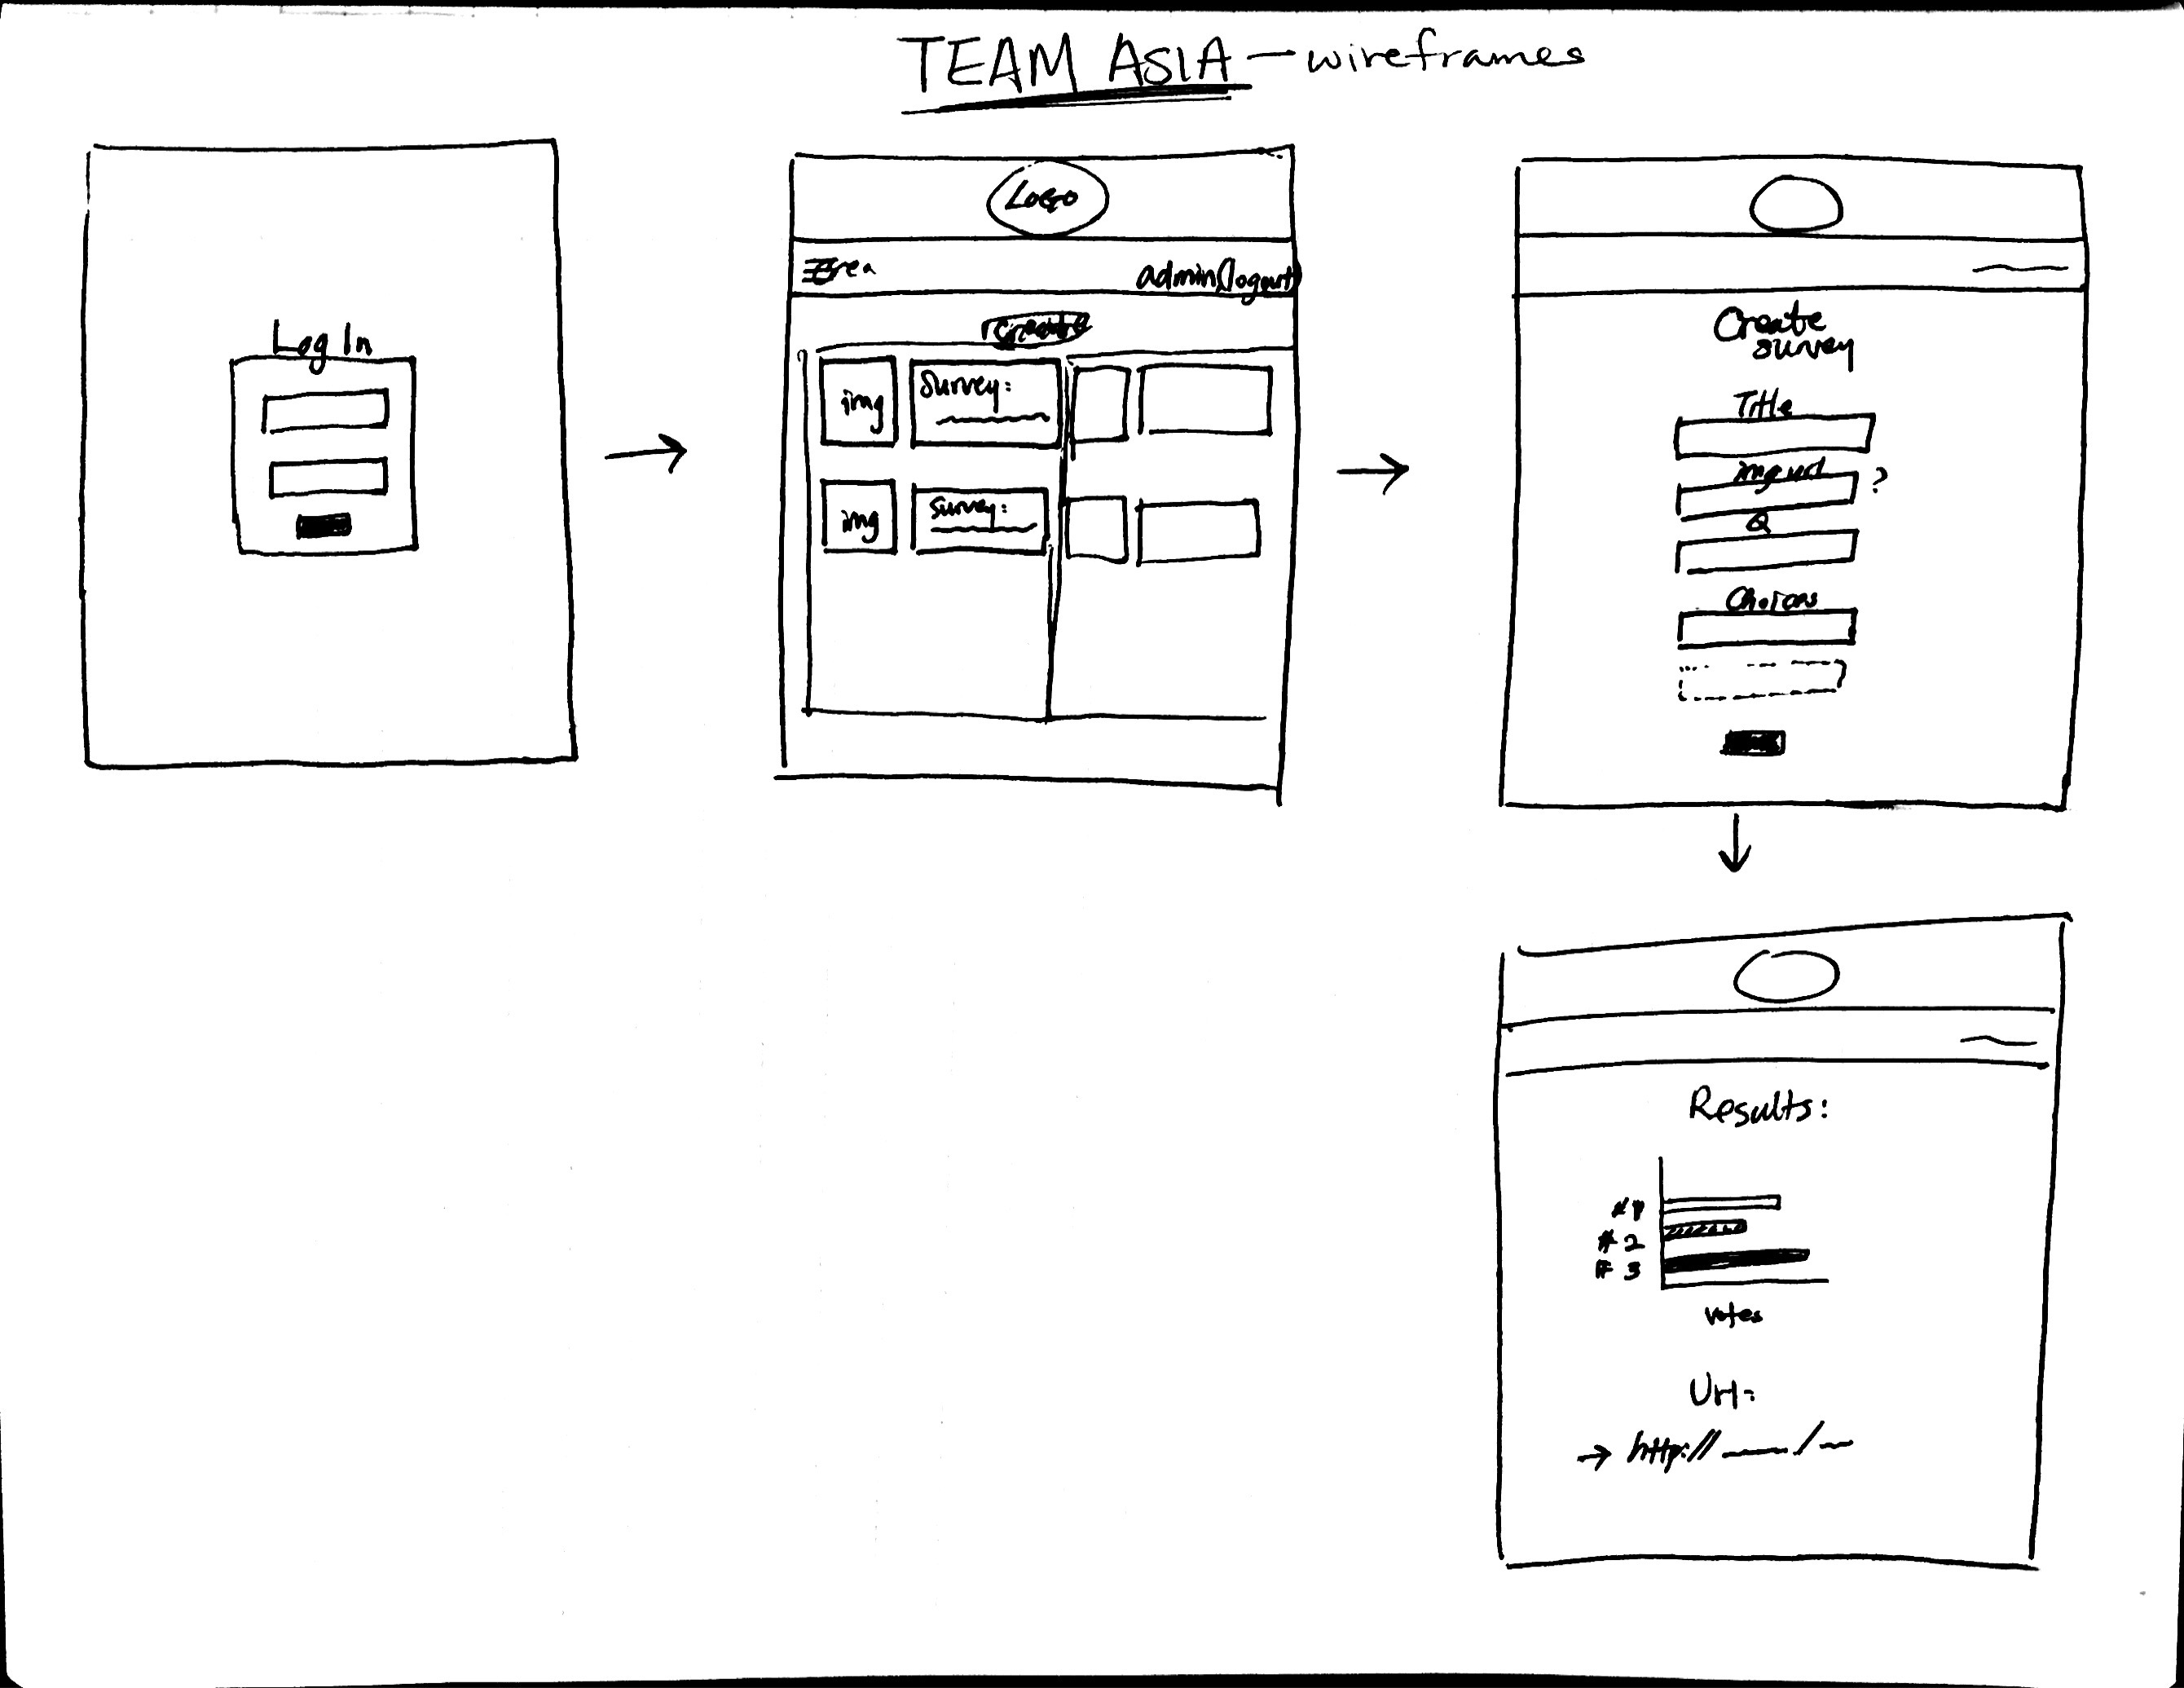 TEAM ASIA - wireframes
Log In
Logo
admin(logout)
create
img
Survey:
img
Survey:
Create
survey
Title
img url ?
Q
Choices
Results:
#1
#2
#3
votes
Url:
→ http:// ___ / __